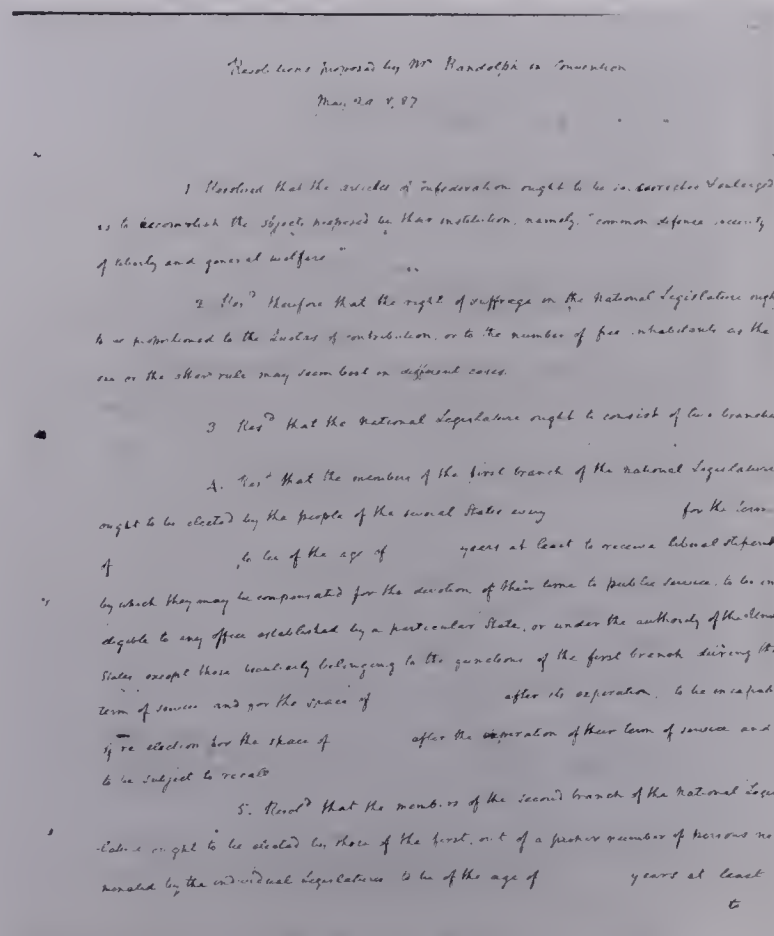 Resolutions proposed by Mr Randolph in Convention
May 29 1787
1 Resolved that the articles of Confederation ought to be so corrected & enlarged
as to accomplish the objects proposed by their institution, namely, "common defence security
of liberty and general welfare"
2 Resd therefore that the right of suffrage in the National Legislature ough
to be proportioned to the Quotas of contribution, or to the number of free inhabitants as the
one or the other rule may seem best in different cases.
3 Resd that the National Legislature ought to consist of two branches
4. Resd that the members of the first branch of the national Legislature
ought to be elected by the people of the several States every for the term
of to be of the age of years at least to receive liberal stipend
by which they may be compensated for the devotion of their time to public service, to be in
eligible to any office established by a particular State, or under the authority of the United
States except those peculiarly belonging to the functions of the first branch during the
term of service and for the space of after its expiration, to be incapab
of re election for the space of after the expiration of their term of service and
to be subject to recall
5. Resold that the members of the second branch of the national Legis
-lature ought to be elected by those of the first, out of a proper number of persons no
minated by the individual Legislatures to be of the age of years at least
to